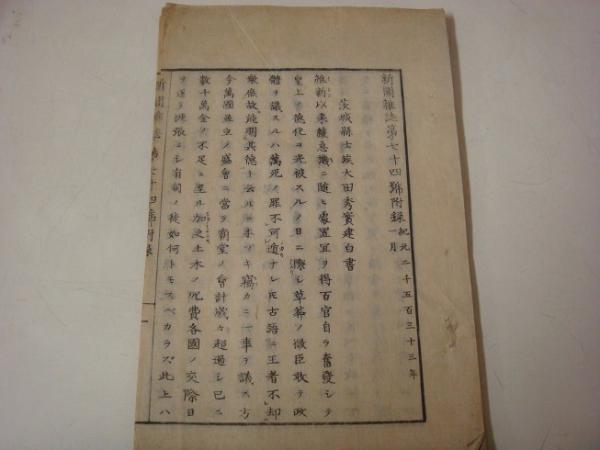 新聞雑誌第七十四號附録 紀元二千五百三十三年一月
茨城縣士族大田秀實建白書
維新以来機ニ随ヒ處置宜ヲ得百官自ラ奮發シテ
皇上ノ徳化ニ光被スルノ日ニ際シ草莽ノ微臣敢テ政
體ヲ議スルハ萬死ノ罪不可遁ナレ𪜈古語ニ王者不却
衆庶故能明其徳ト云ルニ本ツキ竊カニ一事ヲ議ス方
今萬國並立ノ盛會ニ當リ廟堂ノ會計歳々超過シ已ニ
數千萬金ノ不足ニ至ル加之土木ノ冗費各國ノ交際日
ヲ逐テ ニシ有司ノ後如何トモスベカラズ此上ハ
新聞雑誌 第七十四號附録
一